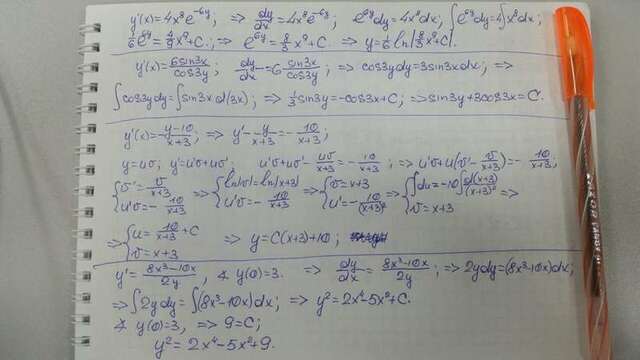 y'(x)=4x⁸e^{-6y}; => dy/dx=4x⁸e^{-6y}; e^{6y}dy=4x⁸dx; ∫e^{6y}dy=4∫x⁸dx;
1/6 e^{6y}=4/9 x⁹+C; => e^{6y}=8/3 x⁹+C. => y=1/6 ln|8/3 x⁹+C|.
y'(x)=6sin3x/cos3y; dy/dx=6 sin3x/cos3y; => cos3ydy=3sin3xdx; =>
∫cos3ydy=∫sin3xd(3x); => 1/3 sin3y=-cos3x+C; => sin3y+3cos3x=C.
y'(x)=y-10/x+3; => y'-y/x+3=-10/x+3;
y=uv; y'=u'v+uv'; u'v+uv'-uv/x+3=-10/x+3; => u'v+u(v'-v/x+3)=-10/x+3;
{v'=v/x+3 => {ln|v|=ln|x+3| => {v=x+3 => {∫du=-10∫d(x+3)/(x+3)² =>
{u'v=-10/x+3 {u'v=-10/x+3 {u'=-10/(x+3)² {v=x+3
=> {u=10/x+3+C => y=C(x+3)+10;
{v=x+3
y'=8x³-10x/2y, y(0)=3. => dy/dx=8x³-10x/2y; => 2ydy=(8x³-10x)dx;
=> ∫2ydy=∫(8x³-10x)dx; => y²=2x⁴-5x²+C.
y(0)=3, => 9=C;
y²=2x⁴-5x²+9.